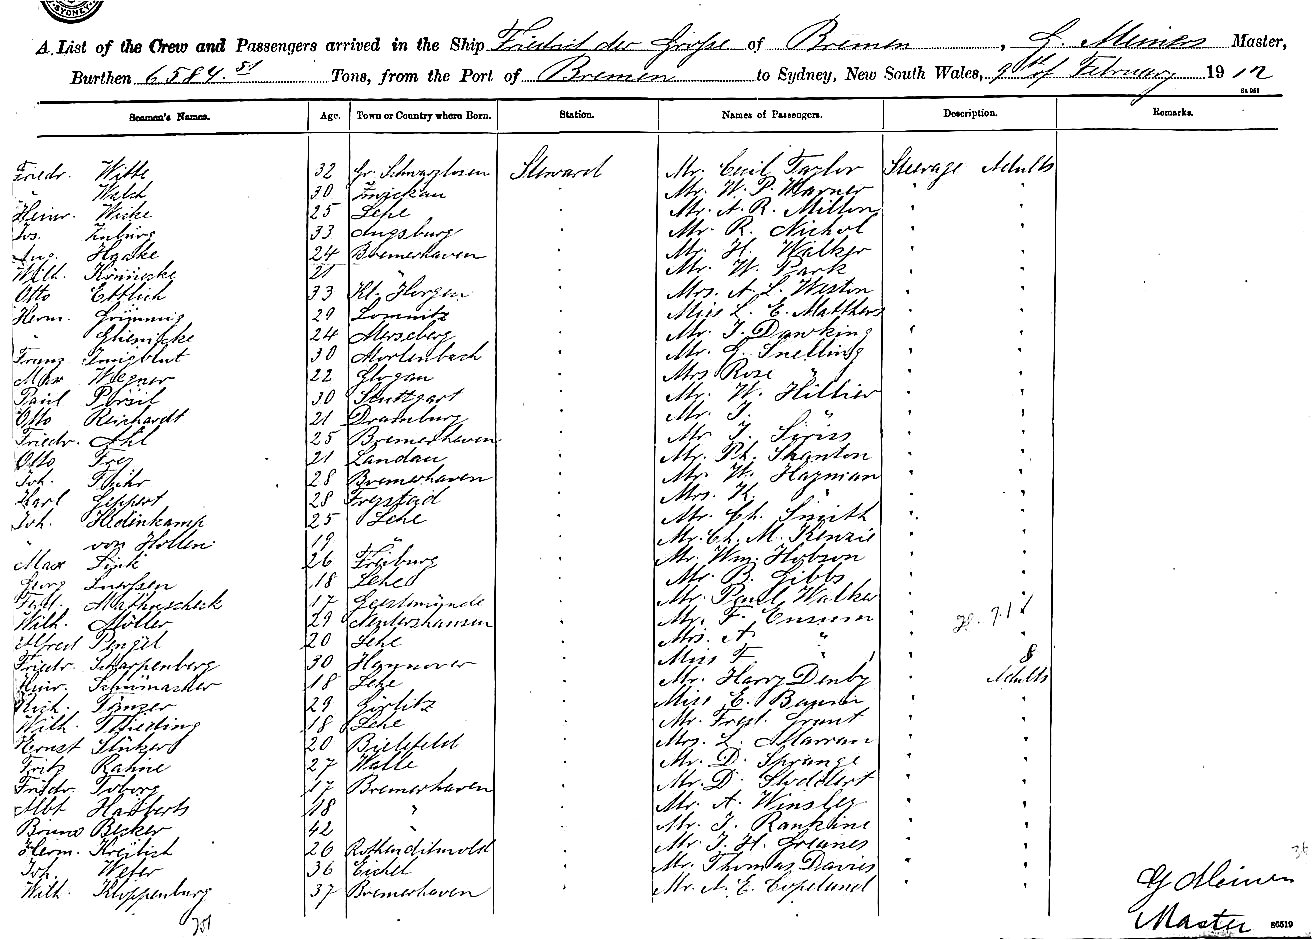 SYDNEY
A List of the Crew and Passengers arrived in the Ship Friedrich der Große of Bremen, G. Meiners Master,
Burthen 6584.51 Tons, from the Port of Bremen to Sydney, New South Wales, of February 1912
Seamen's Names. Age. Town or Country where Born. Station. Names of Passengers. Description. Remarks.
Friedr. Witte 32 Steward Mr. Cecil Taylor Steerage Adults
" 30 Zwickau " Mr. W. P. Warner " "
Heinr. Wicke 25 Lehe " Mr. A. R. Milton " "
Jos. 33 Augsburg " Mr. R. Nichol " "
Aug. Haake 24 Bremerhaven " Mr. H. Walker " "
Wilh. Könnecke 21 " " Mr. W. Park " "
Otto Ettlich 33 " Mrs. A. L. Weston " "
Herm. 29 Lomnitz " Miss L. E. Matthers " "
" 24 Merseberg " Mr. J. Dawking " "
Franz 30 Mörlenbach " Mr. G. Snelling " "
Max Wegner 22 Glogau " Mrs Rose " " "
Paul Persil 30 Stuttgart " Mr. W. Hillier " "
Otto Reichardt 21 Dramburg " Mr. J. " "
Friedr. Ahl 25 Bremerhaven " Mr. J. " "
Otto Frey 21 Landau " Mr. Ph. Shanton " "
Joh. 28 Bremerhaven " Mr. W. Hayman " "
Karl Geppert 28 Freystad " Mrs. H. " " "
Joh. Hedenkamp 25 Lehe " Mr. Ch. Smith " "
" von Hollen 19 " " Mr. Ch. M. Kenzie " "
Max Fink 26 Freiburg " Mr. Wm. Hobson " "
Georg 18 Lehe " Mr. B. Gibbs " "
Mathuscheck 17 Geestemünde " Mr. Paul Walker " "
Wilh. Möller 29 Nentershausen " Mr. F. Ensum " "
Alfred Pengel 20 Lehe " Mrs. A. " " "
Friedr. Scharpenberg 30 Hannover " Miss F. " " 8
Heinr. Schumacher 18 Lehe " Mr. Harry Denby " Adults
Rich. Tänzer 29 Görlitz " Miss E. " "
Wilh. Thieding 18 Lehe " Mr. Fred. Grant " "
Ernst 20 Bielefeld " Mrs. L. Marran " "
Fritz Rahne 27 Walle " Mr. D. Sprange " "
Friedr. Toborg 17 Bremerhaven " Mr. D. Studdert " "
Albt Hasberts 18 " " Mr. A. Winsley " "
Bruno Becker 42 " " Mr. J. Rankine " "
Herm. Kreilich 26 Rothenditmold " Mr. J. H. " "
Joh. Weser 36 Eichel " Mr. Thomas Davies " "
Wilh. Kloppenburg 37 Bremerhaven " Mr. A. E. Copeland " "
G Meiners
Master
86519